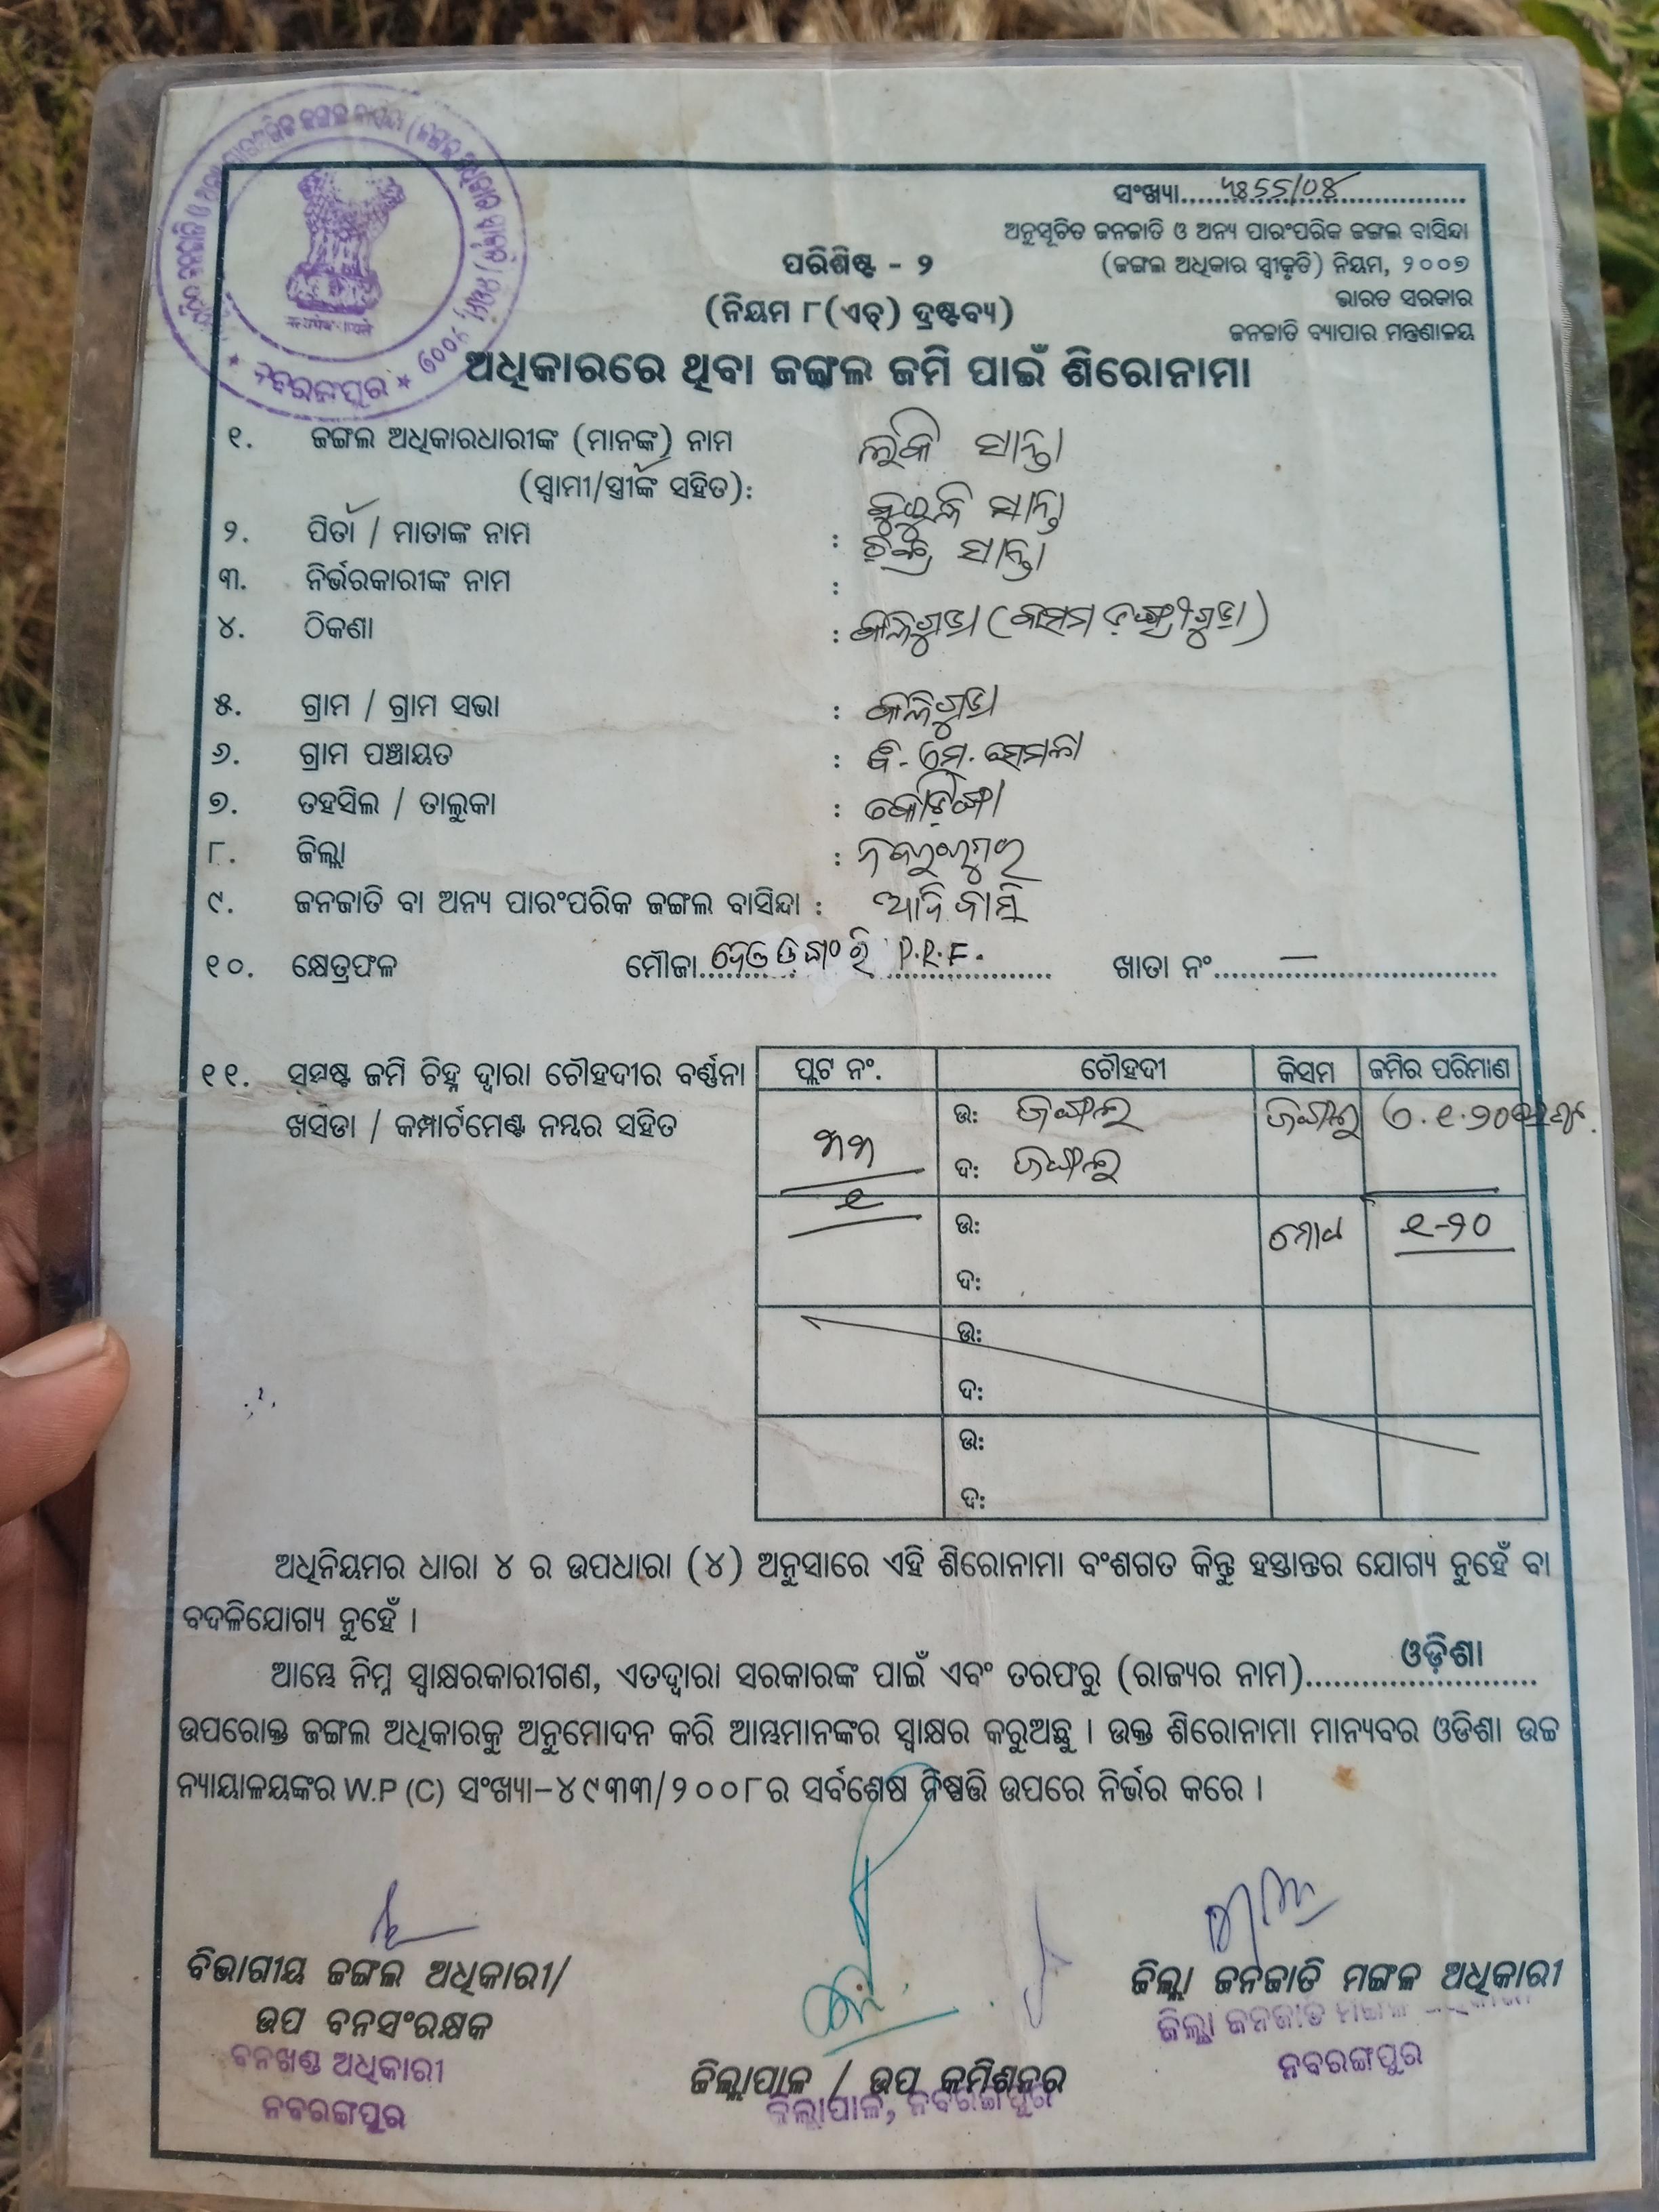 ସଂଖ୍ୟା
ଅନୁସୂଚିତ ଜନଜାତି ଓ ଅନ୍ୟ ପାରଂପରିକ ଜଙ୍ଗଲ ବାସିନ୍ଦା
(ଜଙ୍ଗଲ ଅଧିକାର ସ୍ୱୀକୃତି) ନିୟମ, ୨୦୦୭
ଭାରତ ସରକାର
ଜନଜାତି ବ୍ୟାପାର ମନ୍ତ୍ରଣାଳୟ
ପରିଶିଷ୍ଟ - ୨
(ନିୟମ ୮(ଏଚ୍) ଦ୍ରଷ୍ଟବ୍ୟ)
ଅଧିକାରରେ ଥିବା ଜଙ୍ଗଲ ଜମି ପାଇଁ ଶିରୋନାମା
ନବରଙ୍ଗପୁର
୧. ଜଙ୍ଗଲ ଅଧିକାରଧାରୀଙ୍କ (ମାନଙ୍କ) ନାମ ସାନ୍ତା
(ସ୍ୱାମୀ/ସ୍ତ୍ରୀଙ୍କ ସହିତ): ସାନ୍ତା
୨. ପିତା / ମାତାଙ୍କ ନାମ : ସାନ୍ତା
୩. ନିର୍ଭରକାରୀଙ୍କ ନାମ :
୪. ଠିକଣା : କଲିଗୁଡା
୫. ଗ୍ରାମ / ଗ୍ରାମ ସଭା : କଲିଗୁଡା
୬. ଗ୍ରାମ ପଞ୍ଚାୟତ : ସେମଳା
୭. ତହସିଲ / ତାଲୁକା : କୋଡ଼ିଙ୍ଗା
୮. ଜିଲ୍ଲା :
୯. ଜନଜାତି ବା ଅନ୍ୟ ପାରଂପରିକ ଜଙ୍ଗଲ ବାସିନ୍ଦା : ଆଦିବାସି
୧୦. କ୍ଷେତ୍ରଫଳ ମୌଜା P.R.F. ଖାତା ନଂ —
୧୧. ସ୍ପଷ୍ଟ ଜମି ଚିହ୍ନ ଦ୍ୱାରା ଚୌହଦୀର ବର୍ଣ୍ଣନା
ଖସଡା / କମ୍ପାର୍ଟମେଣ୍ଟ ନମ୍ବର ସହିତ
ପ୍ଲଟ ନଂ. ଚୌହଦୀ କିସମ ଜମିର ପରିମାଣ
ଉ: ଜଙ୍ଗଲ ଜଙ୍ଗଲ
୩୩ ଦ: ଜଙ୍ଗଲ
୧ ଉ: ମୋଟ ୧-୨୦
ଦ:
ଉ:
ଦ:
ଉ:
ଦ:
ଅଧିନିୟମର ଧାରା ୪ ର ଉପଧାରା (୪) ଅନୁସାରେ ଏହି ଶିରୋନାମା ବଂଶଗତ କିନ୍ତୁ ହସ୍ତାନ୍ତର ଯୋଗ୍ୟ ନୁହେଁ ବା
ବଦଳିଯୋଗ୍ୟ ନୁହେଁ ।
ଆମ୍ଭେ ନିମ୍ନ ସ୍ୱାକ୍ଷରକାରୀଗଣ, ଏତଦ୍ୱାରା ସରକାରଙ୍କ ପାଇଁ ଏବଂ ତରଫରୁ (ରାଜ୍ୟର ନାମ) ଓଡ଼ିଶା
ଉପରୋକ୍ତ ଜଙ୍ଗଲ ଅଧିକାରକୁ ଅନୁମୋଦନ କରି ଆମ୍ଭମାନଙ୍କର ସ୍ୱାକ୍ଷର କରୁଅଛୁ । ଉକ୍ତ ଶିରୋନାମା ମାନ୍ୟବର ଓଡିଶା ଉଚ୍ଚ
ନ୍ୟାୟାଳୟଙ୍କର W.P (C) ସଂଖ୍ୟା-୪୯୩୩/୨୦୦୮ର ସର୍ବଶେଷ ନିଷ୍ପତ୍ତି ଉପରେ ନିର୍ଭର କରେ ।
ବିଭାଗୀୟ ଜଙ୍ଗଲ ଅଧିକାରୀ/
ଉପ ବନସଂରକ୍ଷକ
ବନଖଣ୍ଡ ଅଧିକାରୀ
ନବରଙ୍ଗପୁର
ଜିଲ୍ଲାପାଳ / ଉପ କମିଶନର
ଜିଲ୍ଲାପାଳ, ନବରଙ୍ଗପୁର
ଜିଲ୍ଲା ଜନଜାତି ମଙ୍ଗଳ ଅଧିକାରୀ
ଜିଲ୍ଲା ଜନଜାତି ମଙ୍ଗଳ
ନବରଙ୍ଗପୁର